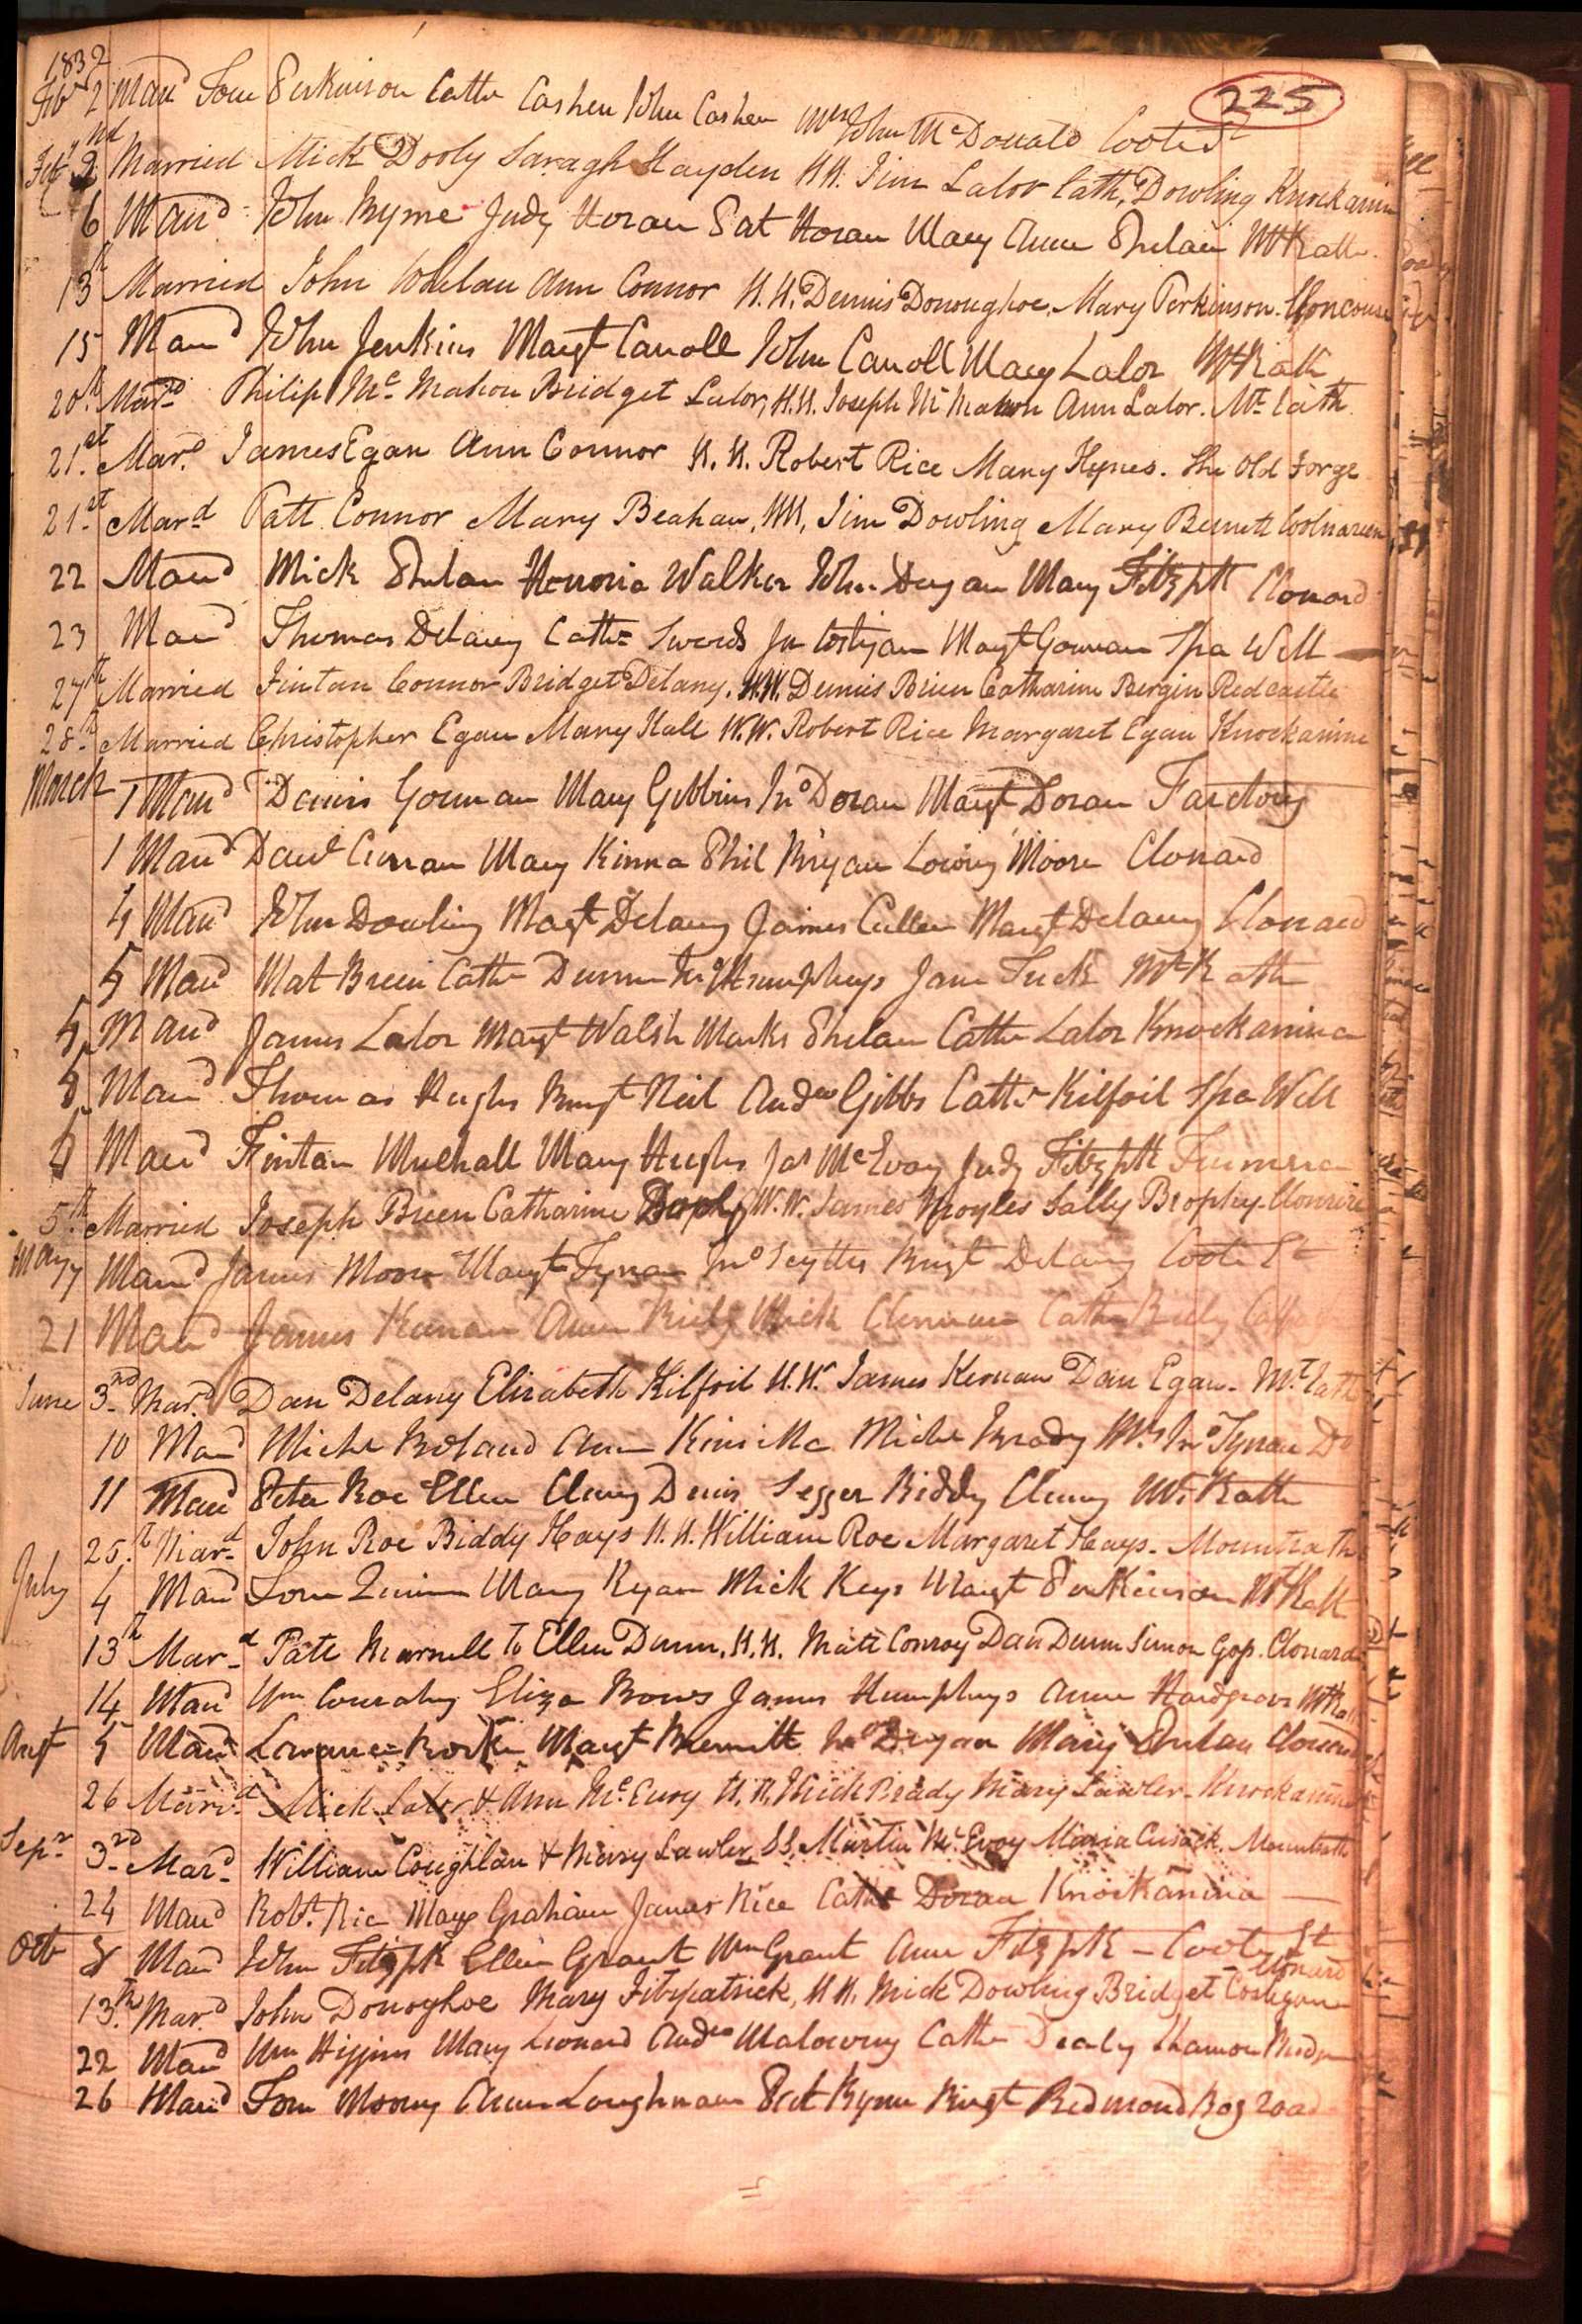 1832
225
Feb 2 Mard Tom Perkinson Cathe Cashen John Cashen Mrs John McDonald Coote St
Feby 2nd Married Mick Dooly Saragh Hayden W.W. Jim Lalor Cath, Dowling Knockanin
6 Maried John Byrne Judy Horan Pat Horan Mary Anne Phelan Mt Rath
13th Married John Whelan Ann Connor W.W. Dennis Donoughoe, Mary Perkinson. Cloncourse
15 Mard John Jenkins Margt Carroll John Carroll Mary Lalor Mt Rath
20th Mard Philip Mc Mahon Bridget Lalor, W.W. Joseph Mc Mahon Ann Lalor. Mt rath
21st Mard James Egan Ann Connor W.W. Robert Rice Mary Hynes. The Old Forge
21st Mard Patt Connor Mary Beahan, WW, Jim Dowling Mary Bennett
22 Mard Mick Phelan Honoria Walker John Deegan Mary Fitzptk Clonard
23 Mard Thomas Delany Cathe Swords Jn Costigan Margt Gorman Spa Well
27th Married Fintan Connor Bridget Delany. W.W. Dennis Brien Catharine Bergin Redcastle
28th Married Christopher Egan Mary Hall W.W. Robert Rice Margaret Egan Knockanine
March 1 Mard Denis Gorman Mary Gibbins Jno Doran Margt Doran Factory
1 Mard Curran Mary Kinna Phil Bryan Moore Clonard
4 Mard John Dowling Margt Delany James Cullen Margt Delany Clonard
5 Mard Mat Breen Cathe Dunne Jn Humphrys Jane Tuck Mt Rath
5 Mard James Lalor Margt Walsh Marks Phelan Cathe Lalor Knockanina
5 Mard Thomas Hughs Brigt Neil Andw Gibbs Cathe Kilfoil Spa Well
5 Mard Fintan Mulhall Mary Hughs Jas McEvoy Judy Fitzptk
5th Married Joseph Breen Catharine W.W. James Moyles Sally Brophy
May 7 Mard James Moore Margt Tynan Jno Brigt Delany Coote St
21 Mard James Keenan Anne Mick Cathe
June 3rd Mard Dan Delany Elizabeth Kilfoil W.W. James Kernan Dan Egan. Mt rath
10 Mard Michl Boland Ann Kinsilla Michl Brady Mrs Jno Tynan Do
11 Mard Peter Roe Ellen Cleary Denis Biddy Cleary Mt Rath
25th Mard John Roe Biddy Hays W.W. William Roe Margaret Hays. Mountrath
July 4 Mard Tom Quinn Mary Ryan Mick Keys Margt Perkinson Mt Rath
13th Mard Patt to Ellen Dunn. W.W. Matt Conroy Dan Dunn Clonard
14 Mard Wm Conrahy Eliza Bows James Humphrys Anne Hardgrove Mt Rath
Augt 5 Mard Lawrance Margt Bennett Jno Deegan Mary Phelan
26 Marrd Mick Lalor & Ann McEvoy W.W. Mick Brady Mary Lawler. Knockanina
Sepr 3rd Mard William Coughlan & Mary Lawler SS, Martin McEvoy Maria Cusack. Mountrath
24 Mard Robt Rice Mary Graham James Rice Cathe Doran Knockanina
Oct 8 Mard John Fitzptk Ellen Grant Wm Grant Anne Fitzptk – Coote St
13th Mard John Donoghoe Mary Fitzpatrick, W W. Mick Dowling Bridget Costigan Clonard
22 Mard Wm Higgins Mary Leonard Andw Malowny Cathe
26 Mard Tom Moony Anne Loughnan Pat Byrne Brigt Redmond Bog road